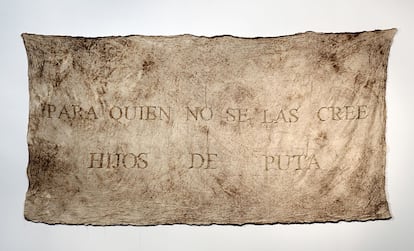 PARA QUIEN NO SE LAS CREE
HIJOS DE PUTA